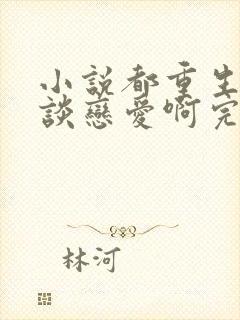 小説都重生
談戀愛啊完
林河